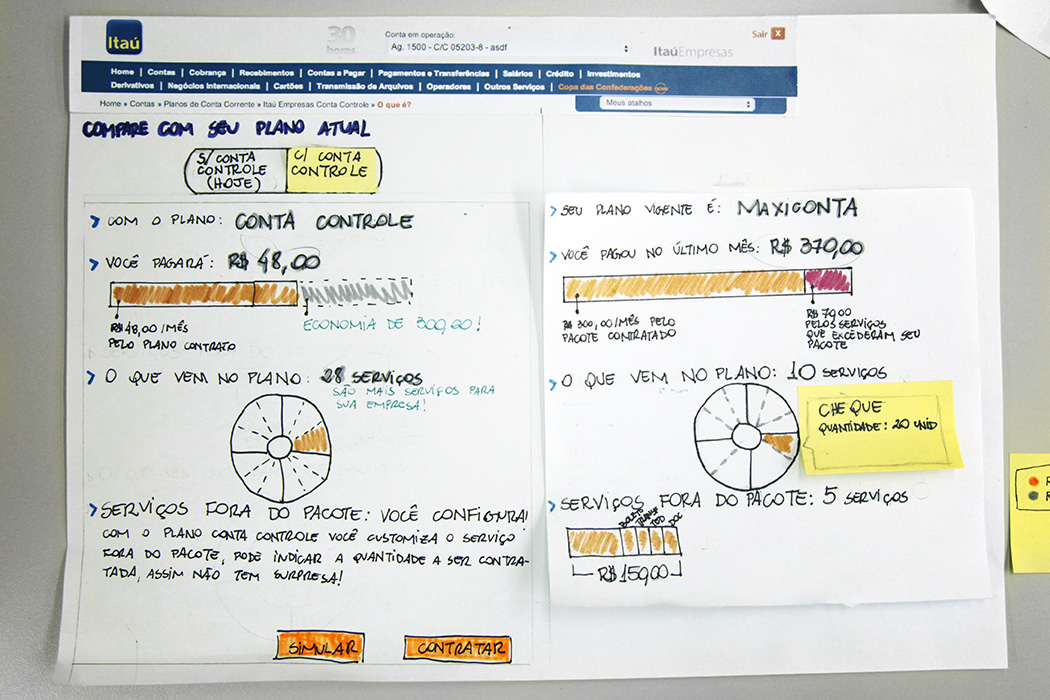 Itaú
30 horas
Conta em operação:
Ag. 1500 - C/C 05203-8 - asdf
Sair X
ItaúEmpresas
Home | Contas | Cobrança | Recebimentos | Contas a Pagar | Pagamentos e Transferências | Salários | Crédito | Investimentos
Derivativos | Negócios Internacionais | Cartões | Transmissão de Arquivos | Operadores | Outros Serviços | Copa das Confederações
Home » Contas » Planos de Conta Corrente » Itaú Empresas Conta Controle » O que é?
Meus atalhos
COMPARE COM SEU PLANO ATUAL
S/ CONTA
CONTROLE
(HOJE)
C/ CONTA
CONTROLE
COM O PLANO: CONTA CONTROLE
VOCÊ PAGARÁ: R$ 48,00
R$ 48,00/MÊS
PELO PLANO CONTRATO
ECONOMIA DE 300,00!
O QUE VEM NO PLANO: 28 SERVIÇOS
SÃO MAIS SERVIÇOS PARA
SUA EMPRESA!
SERVIÇOS FORA DO PACOTE: VOCÊ CONFIGURA!
COM O PLANO CONTA CONTROLE VOCÊ CUSTOMIZA O SERVIÇO
FORA DO PACOTE, PODE INDICAR A QUANTIDADE A SER CONTRA-
TADA, ASSIM NÃO TEM SURPRESA!
SIMULAR
CONTRATAR
SEU PLANO VIGENTE É: MAXICONTA
VOCÊ PAGOU NO ÚLTIMO MÊS: R$ 370,00
R$ 300,00/MÊS PELO
PACOTE CONTRATADO
R$ 70,00
PELOS SERVIÇOS
QUE EXCEDERAM SEU
PACOTE
O QUE VEM NO PLANO: 10 SERVIÇOS
CHEQUE
QUANTIDADE: 20 UNID
SERVIÇOS FORA DO PACOTE: 5 SERVIÇOS
BOLETO
TED
DOC
R$ 150,00
R
R